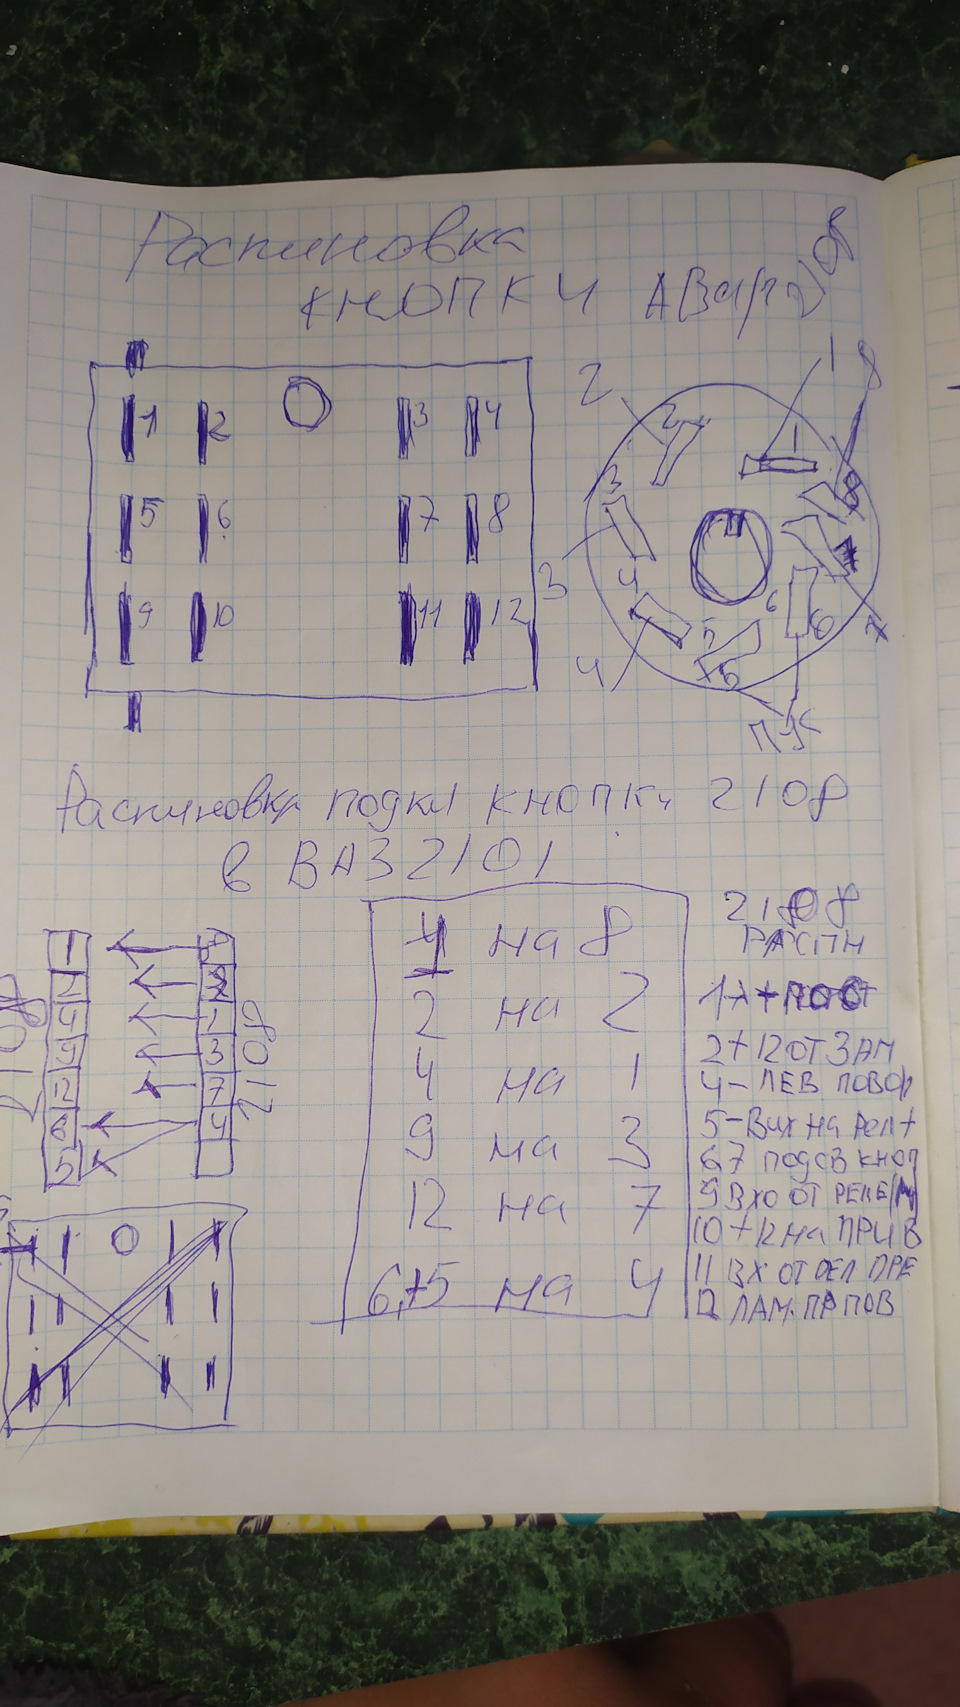 Распиновка
КНОПКИ АВар 2108
1 2 3 4
5 6 7 8
9 10 11 12
2 1 8
2 1
3 8
3 4
4 5 6 6 7
5
Распиновка подкл кнопки 2108
в ВАЗ 2101
2108
РАСПИН
1 на 8
2 на 2
4 на 1
9 на 3
12 на 7
6,+5 на 4
2+12 ОТ ЗАМ
4- ЛЕВ ПОВОР
5- Вых на реле+
6,7 подсв кноп
9 ВХО ОТ РЕЛЕ
10 +12 на ПРИВ
11 ВХ ОТ РЕЛ ПРЕ
12 ЛАМ. ПР ПОВ
1
2 2
4 1
9 3
12 7
6 4
5
2108
2108